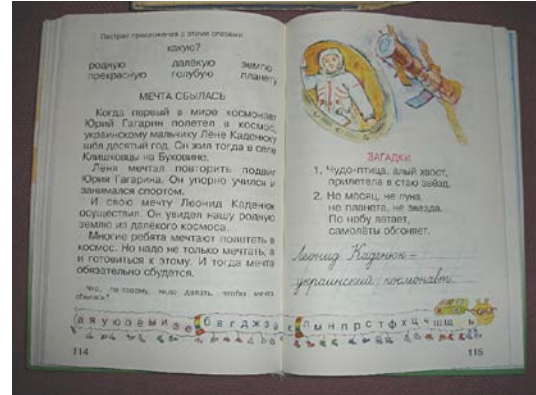 Построй предложения с этими словами.
какую?
родную далёкую землю
прекрасную голубую планету
МЕЧТА СБЫЛАСЬ
Когда первый в мире космонавт
Юрий Гагарин полетел в космос,
украинскому мальчику Лёне Каденюку
шёл десятый год. Он жил тогда в селе
Клишковцы на Буковине.
Лёня мечтал повторить подвиг
Юрия Гагарина. Он упорно учился и
занимался спортом.
И свою мечту Леонид Каденюк
осуществил. Он увидел нашу родную
землю из далёкого космоса.
Многие ребята мечтают полететь в
космос. Но надо не только мечтать, а
и готовиться к этому. И тогда мечта
обязательно сбудется.
Что, по-твоему, надо делать, чтобы мечта
сбылась?
а я у ю о ё ы и э е б в г д ж з й к л м н п р с т ф х ц ч ш щ ь
114
ЗАГАДКИ
1. Чудо-птица, алый хвост,
прилетела в стаю звёзд.
2. Не месяц, не луна,
не планета, не звезда.
По небу летает,
самолёты обгоняет.
Леонид Каденюк –
украинский космонавт.
115